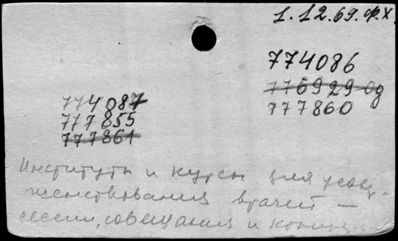 1.12.69. Ф.Х.
774086
776929 од
777860
774087
777855
777861
Институты и курсы для усовер-
шенствования врачей —
сессии, совещания и конфер.